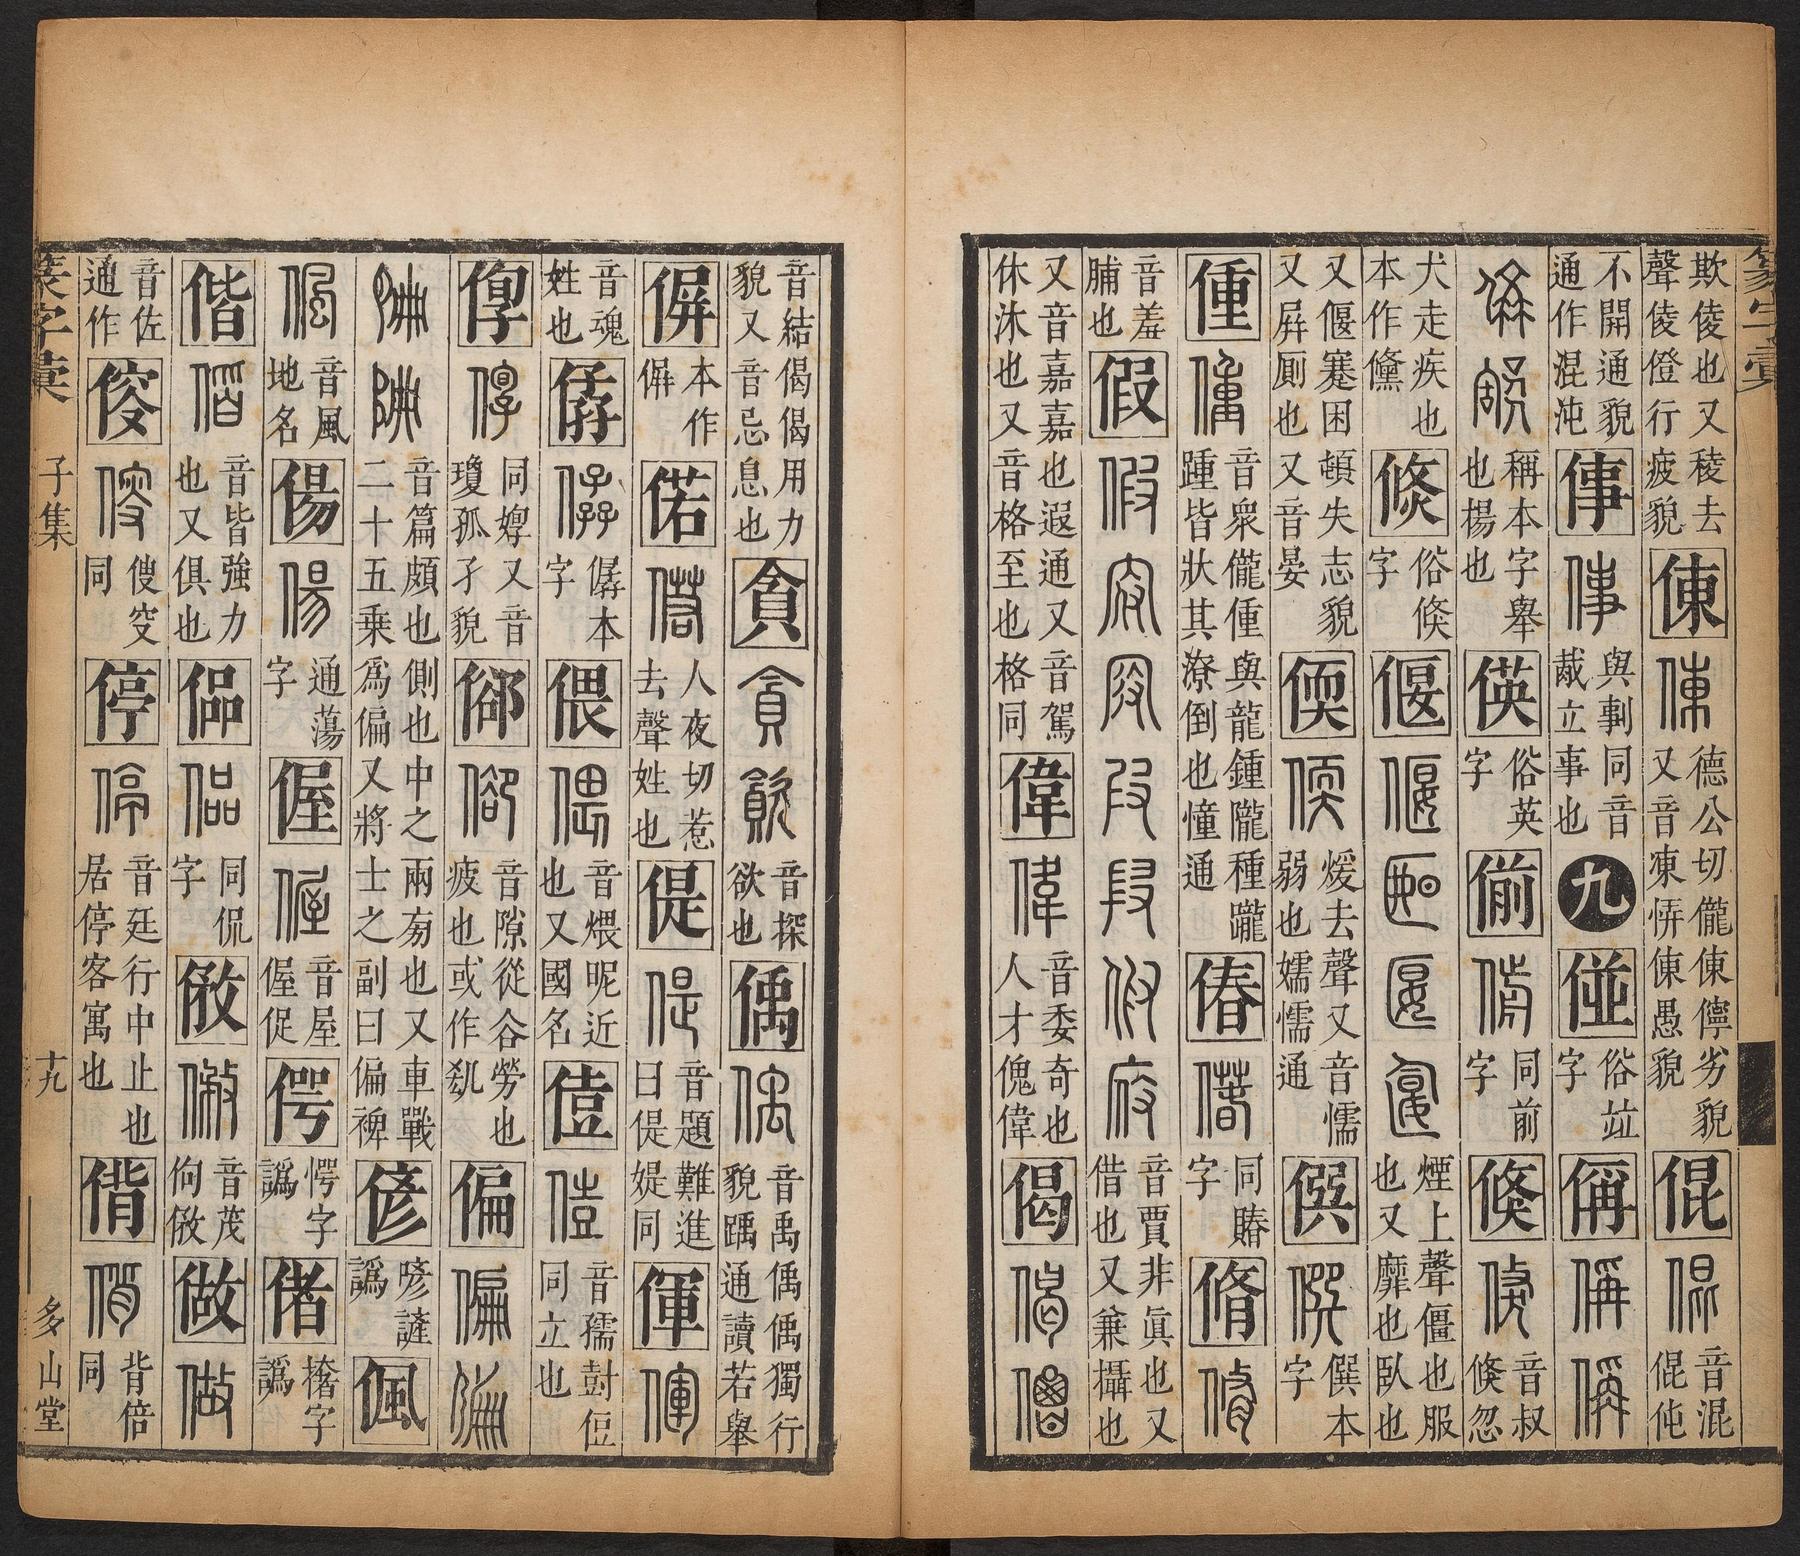 欺倰也又稜去聲倰僜行疲貌倲德公切儱倲儜劣貌又音凍倲愚貌倱音混倱伅
不開通貌通作混沌倳與剚同音胾立事也九俗竝字偁
稱本字舉也揚也偀俗英字偂同前字倏音叔倏忽
犬走疾也本作儵倐俗倏字偃煙上聲僵也服也又靡也臥也
又偃蹇困頓失志貌又屛厠也又音晏偄煖去聲又音懦弱也嬬懦通僎本字
偅音衆儱偅與龍鍾隴種躘踵皆狀其潦倒也憧通偆同賰字脩
音羞脯也假音賈非眞也又借也又兼攝也
又音嘉嘉也遐通又音駕休沐也又音格至也格同偉音委奇也人才傀偉偈
音結偈偈用力貌又音忌息也貪音探欲也偊音禹偊偊獨行貌踽通讀若舉
偋本作僻偌人夜切惹去聲姓也偍音題難進曰偍媞同
音魂姓也僝本字偎音煨昵近也又國名音孺尌侸同立也
同婷又音瓊孤孑貌音隙從谷勞也疲也或作偏
音篇頗也側也中之兩旁也又車戰二十五乗爲偏又將士之副曰偏裨偐喭諺譌偑
音風地名偒通蕩字偓音屋偓促偔愕字譌偖撦字譌
偕音皆強力也又俱也偘同侃字音茂做
音佐通作傁同停音廷行中止也居停客寓也偝背倍同
篆字彙　子集　十九　多山堂